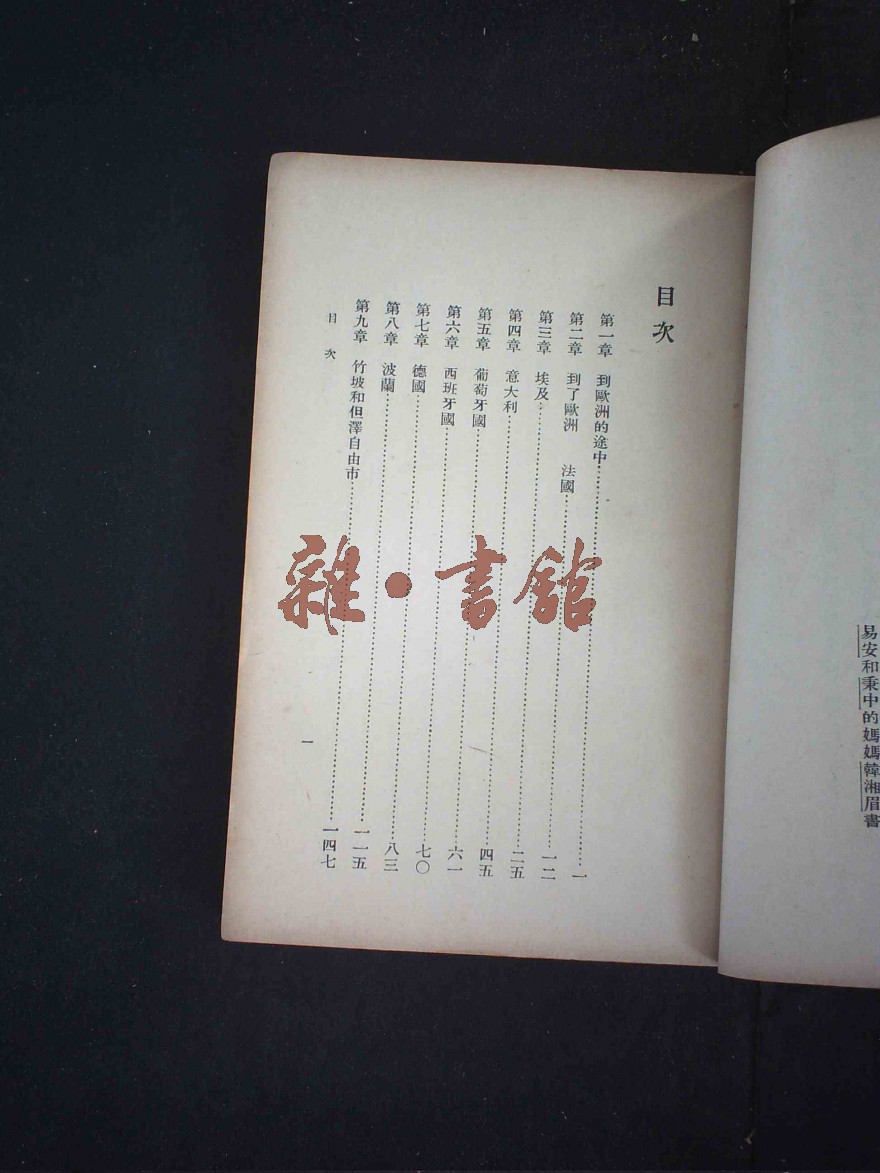 易安和秉中的媽媽韓湘眉書
目次
第一章 到歐洲的途中……一
第二章 到了歐洲 法國……一二
第三章 埃及……二五
第四章 意大利……四五
第五章 葡萄牙國……六一
第六章 西班牙國……七〇
第七章 德國……八三
第八章 波蘭……一一五
第九章 竹坡和但澤自由市……一四七
目次 一
雜·書館